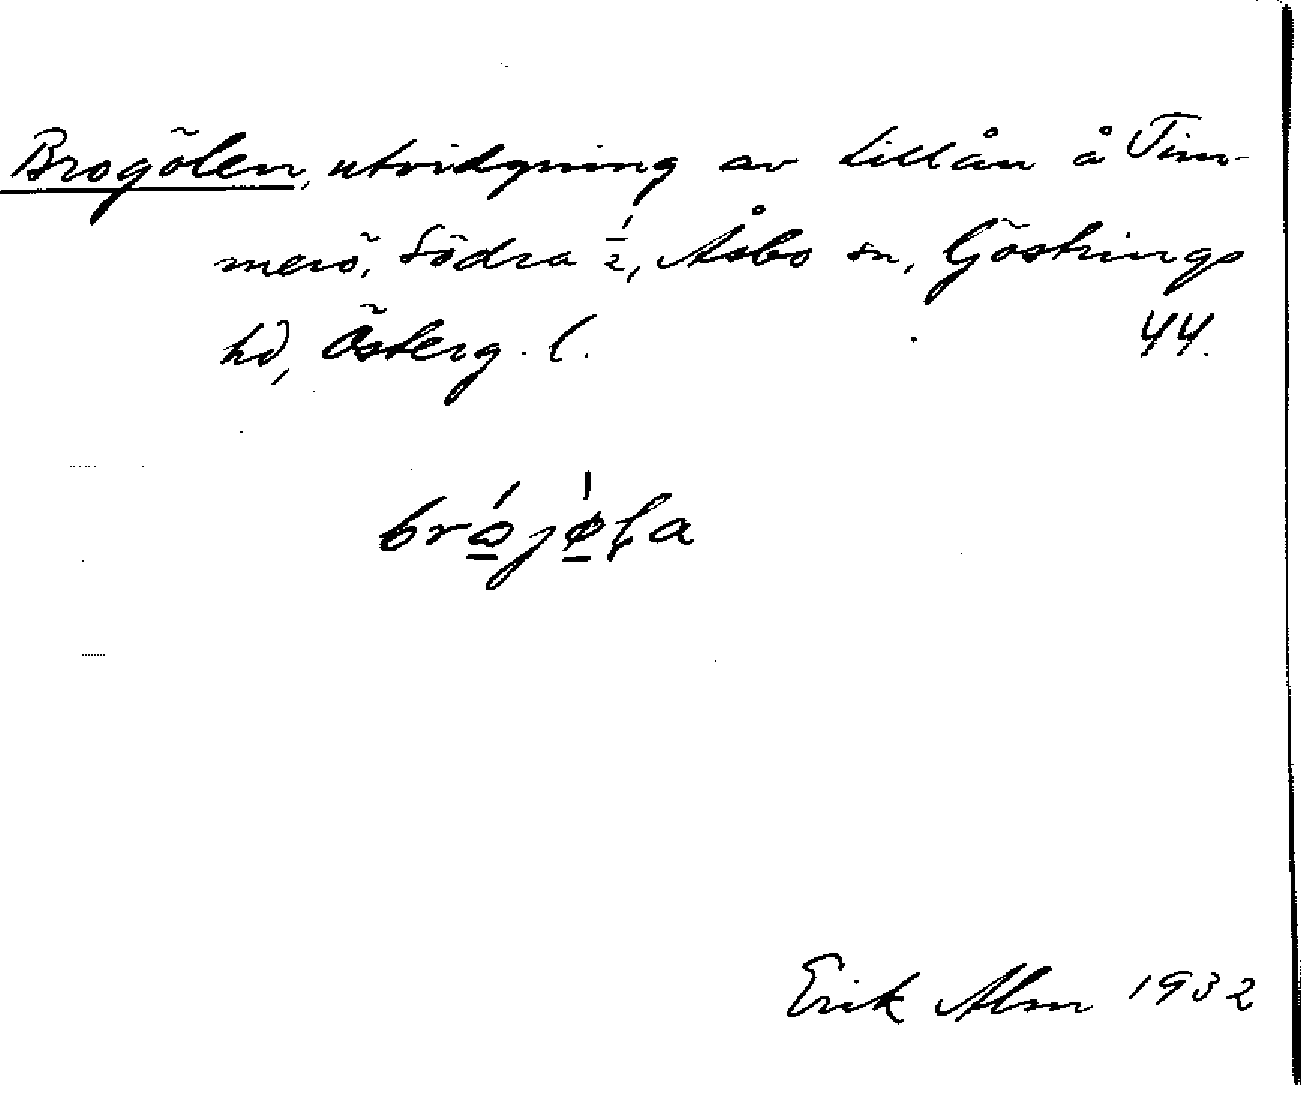 Brogölen, utvidgning av Lillån å Tim-
merö, Södra 1/2, Åsbo sn, Göstrings
hd, Österg. l. 44.
brójø̀ɭa
Erik Alm 1932